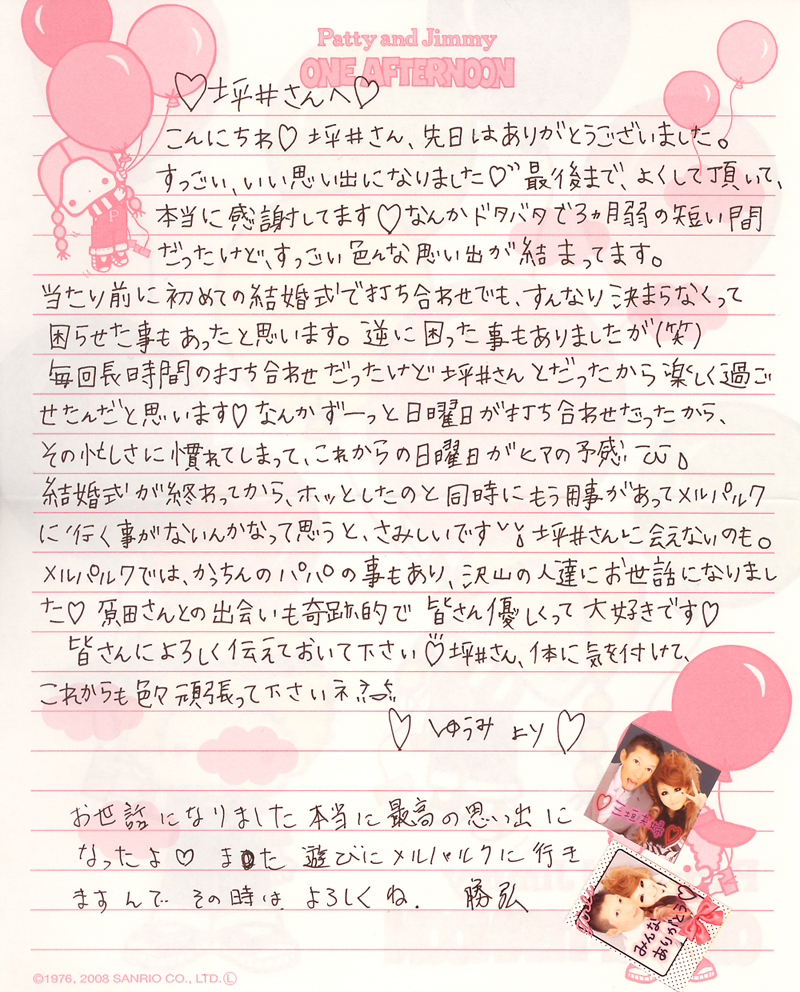 Patty and Jimmy
ONE AFTERNOON
♡坪井さんへ♡
こんにちわ♡ 坪井さん、先日はありがとうございました。
すっごい、いい思い出になりました♡ 最後まで、よくして頂いて、
本当に感謝してます♡なんかドタバタで3ヵ月弱の短い間
だったけど、すっごい色んな思い出が結まってます。
当たり前に初めての結婚式で打ち合わせでも、すんなり決まらなくって
困らせた事もあったと思います。逆に困った事もありましたが(笑)
毎回長時間の打ち合わせだったけど坪井さんとだったから楽しく過ご
せたんだと思います♡なんかずーっと日曜日が打ち合わせだったから、
その忙しさに慣れてしまって、これからの日曜日がヒマの予感
結婚式が終わってから、ホッとしたのと同時にもう用事があってメルパルク
に行く事がないんかなって思うと、さみしいです 坪井さんに会えないのも。
メルパルクでは、かっちんのパパの事もあり、沢山の人達にお世話になりまし
た♡ 原田さんとの出会いも奇跡的で皆さん優しくって大好きです♡
皆さんによろしく伝えておいて下さい 坪井さん、体に気を付けて、
これからも色々頑張って下さいネ
♡ しゅうみ より ♡
お世話になりました 本当に最高の思い出に
なったよ♡ また 遊びにメルパルクに行き
ますんで その時は よろしくね. 勝弘
三垣夫婦
みんな
ありがとう
©1976, 2008 SANRIO CO., LTD. Ⓛ